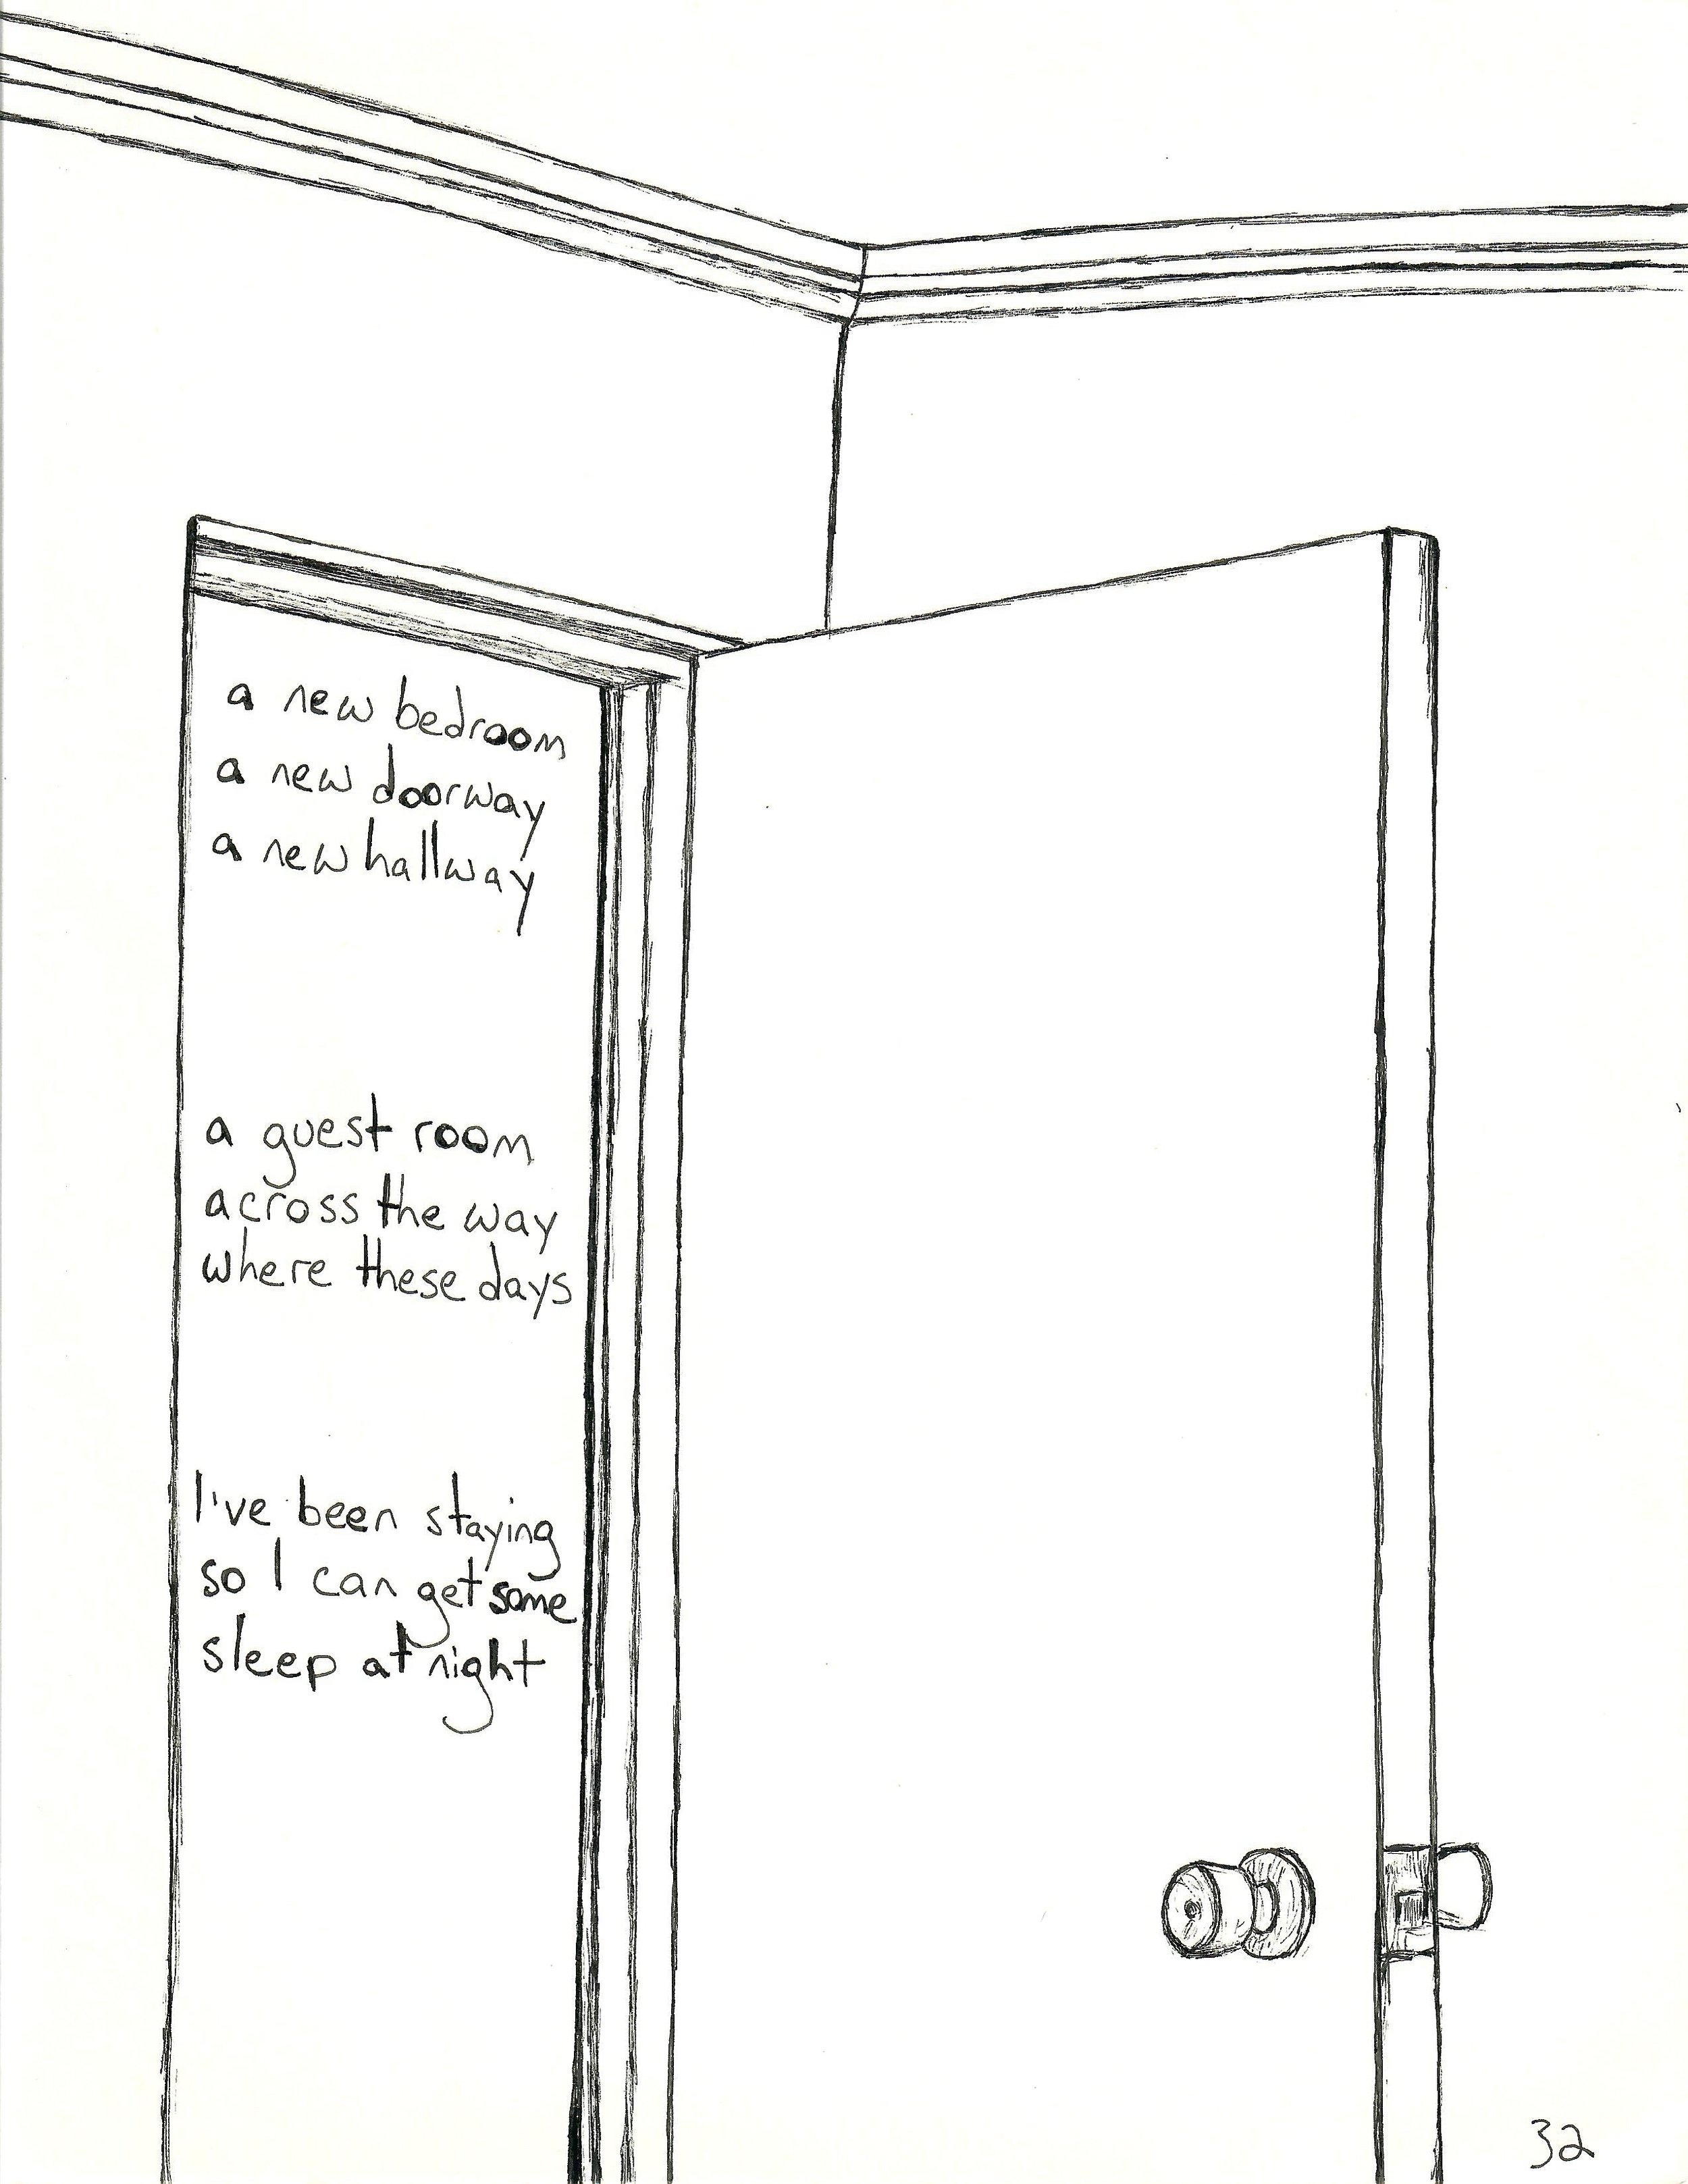 a new bedroom
a new doorway
a new hallway
a guest room
across the way
where these days
I've been staying
so I can get some
sleep at night
32